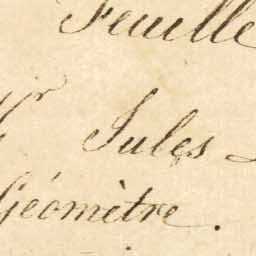 Feuille
Mr Jules
Géomètre.